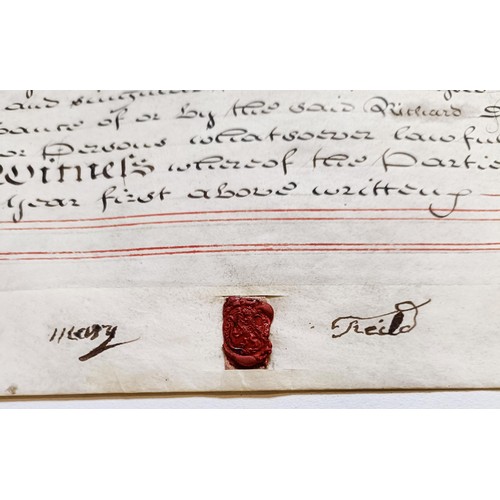 and singular
bance of or by the said Richard
or Persons whatsoever lawful
Witness whereof the Partie
year first above written
Mary Feild